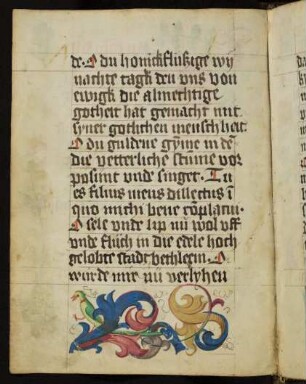 de. O du honickflußige wy
nachte tagk den vns von
ewigk die almechtige
gotheit hat gemacht mit
syner gotlichen menschheit.
O du guldene gyme in de
die vetterliche stime vor
posunt vnde singet. Tu
es filius meus dillectus ī
quo michi bene cōplacui.
O sele vnde lip nū wol vff
vnde fluch in die edele hoch
gelobte stadt bethleem. O
wurde mir nū verlyhen